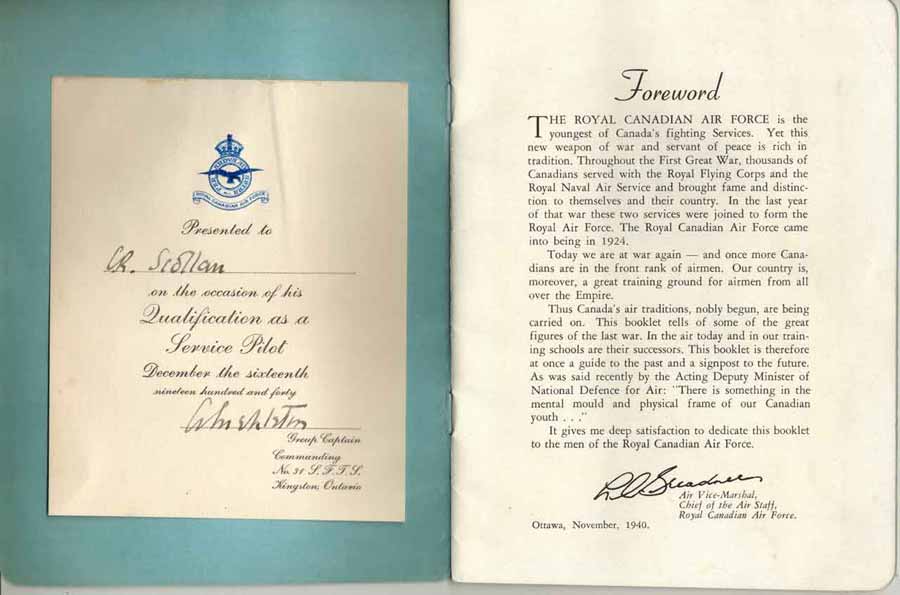 ROYAL CANADIAN AIR FORCE
Presented to
on the occasion of his
Qualification as a
Service Pilot
December the sixteenth
nineteen hundred and forty
Group Captain
Commanding
No. 31 S.F.T.S.
Kingston, Ontario
Foreword
THE ROYAL CANADIAN AIR FORCE is the
youngest of Canada's fighting Services. Yet this
new weapon of war and servant of peace is rich in
tradition. Throughout the First Great War, thousands of
Canadians served with the Royal Flying Corps and the
Royal Naval Air Service and brought fame and distinc-
tion to themselves and their country. In the last year
of that war these two services were joined to form the
Royal Air Force. The Royal Canadian Air Force came
into being in 1924.
Today we are at war again — and once more Cana-
dians are in the front rank of airmen. Our country is,
moreover, a great training ground for airmen from all
over the Empire.
Thus Canada's air traditions, nobly begun, are being
carried on. This booklet tells of some of the great
figures of the last war. In the air today and in our train-
ing schools are their successors. This booklet is therefore
at once a guide to the past and a signpost to the future.
As was said recently by the Acting Deputy Minister of
National Defence for Air: "There is something in the
mental mould and physical frame of our Canadian
youth . . ."
It gives me deep satisfaction to dedicate this booklet
to the men of the Royal Canadian Air Force.
Air Vice-Marshal,
Chief of the Air Staff,
Royal Canadian Air Force.
Ottawa, November, 1940.